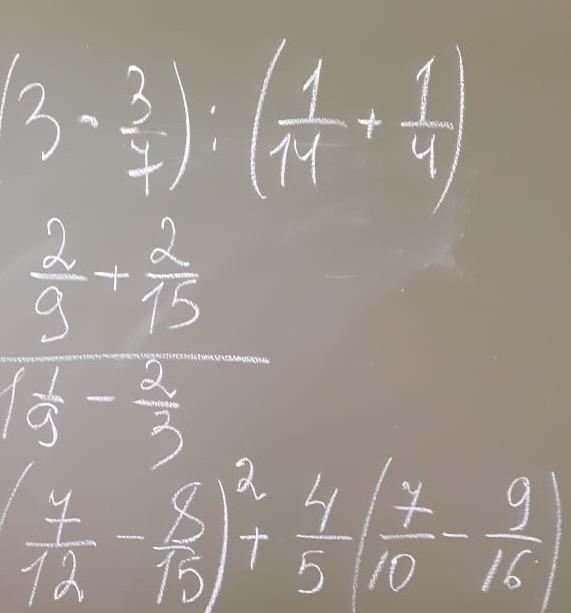 (3 - 3/7) : (1/14 + 1/4)
2/9 + 2/15
1 1/9 - 2/3
(7/12 - 8/15)² + 4/5 (7/10 - 9/16)